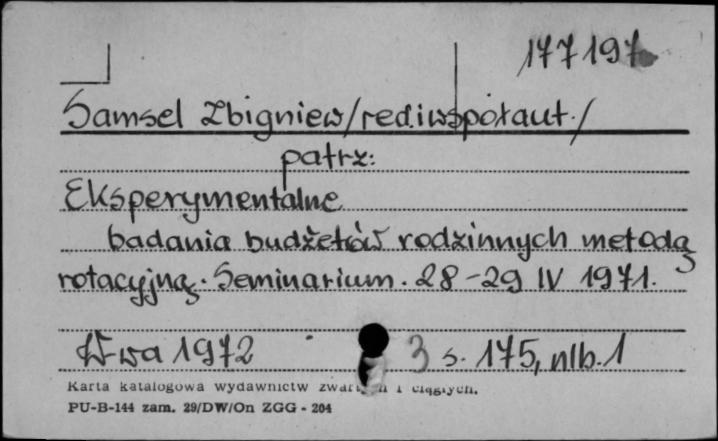 177197
Samsel Zbigniew/red.i współaut./
patrz:
Eksperymentalne
badania budżetów rodzinnych metodą
rotacyjną. Seminarium. 28-29 IV 1971.
W-wa 1972 3 s. 175, nlb. 1
Karta katalogowa wydawnictw i ciągłych.
PU-B-144 zam. 29/DW/On ZGG - 204